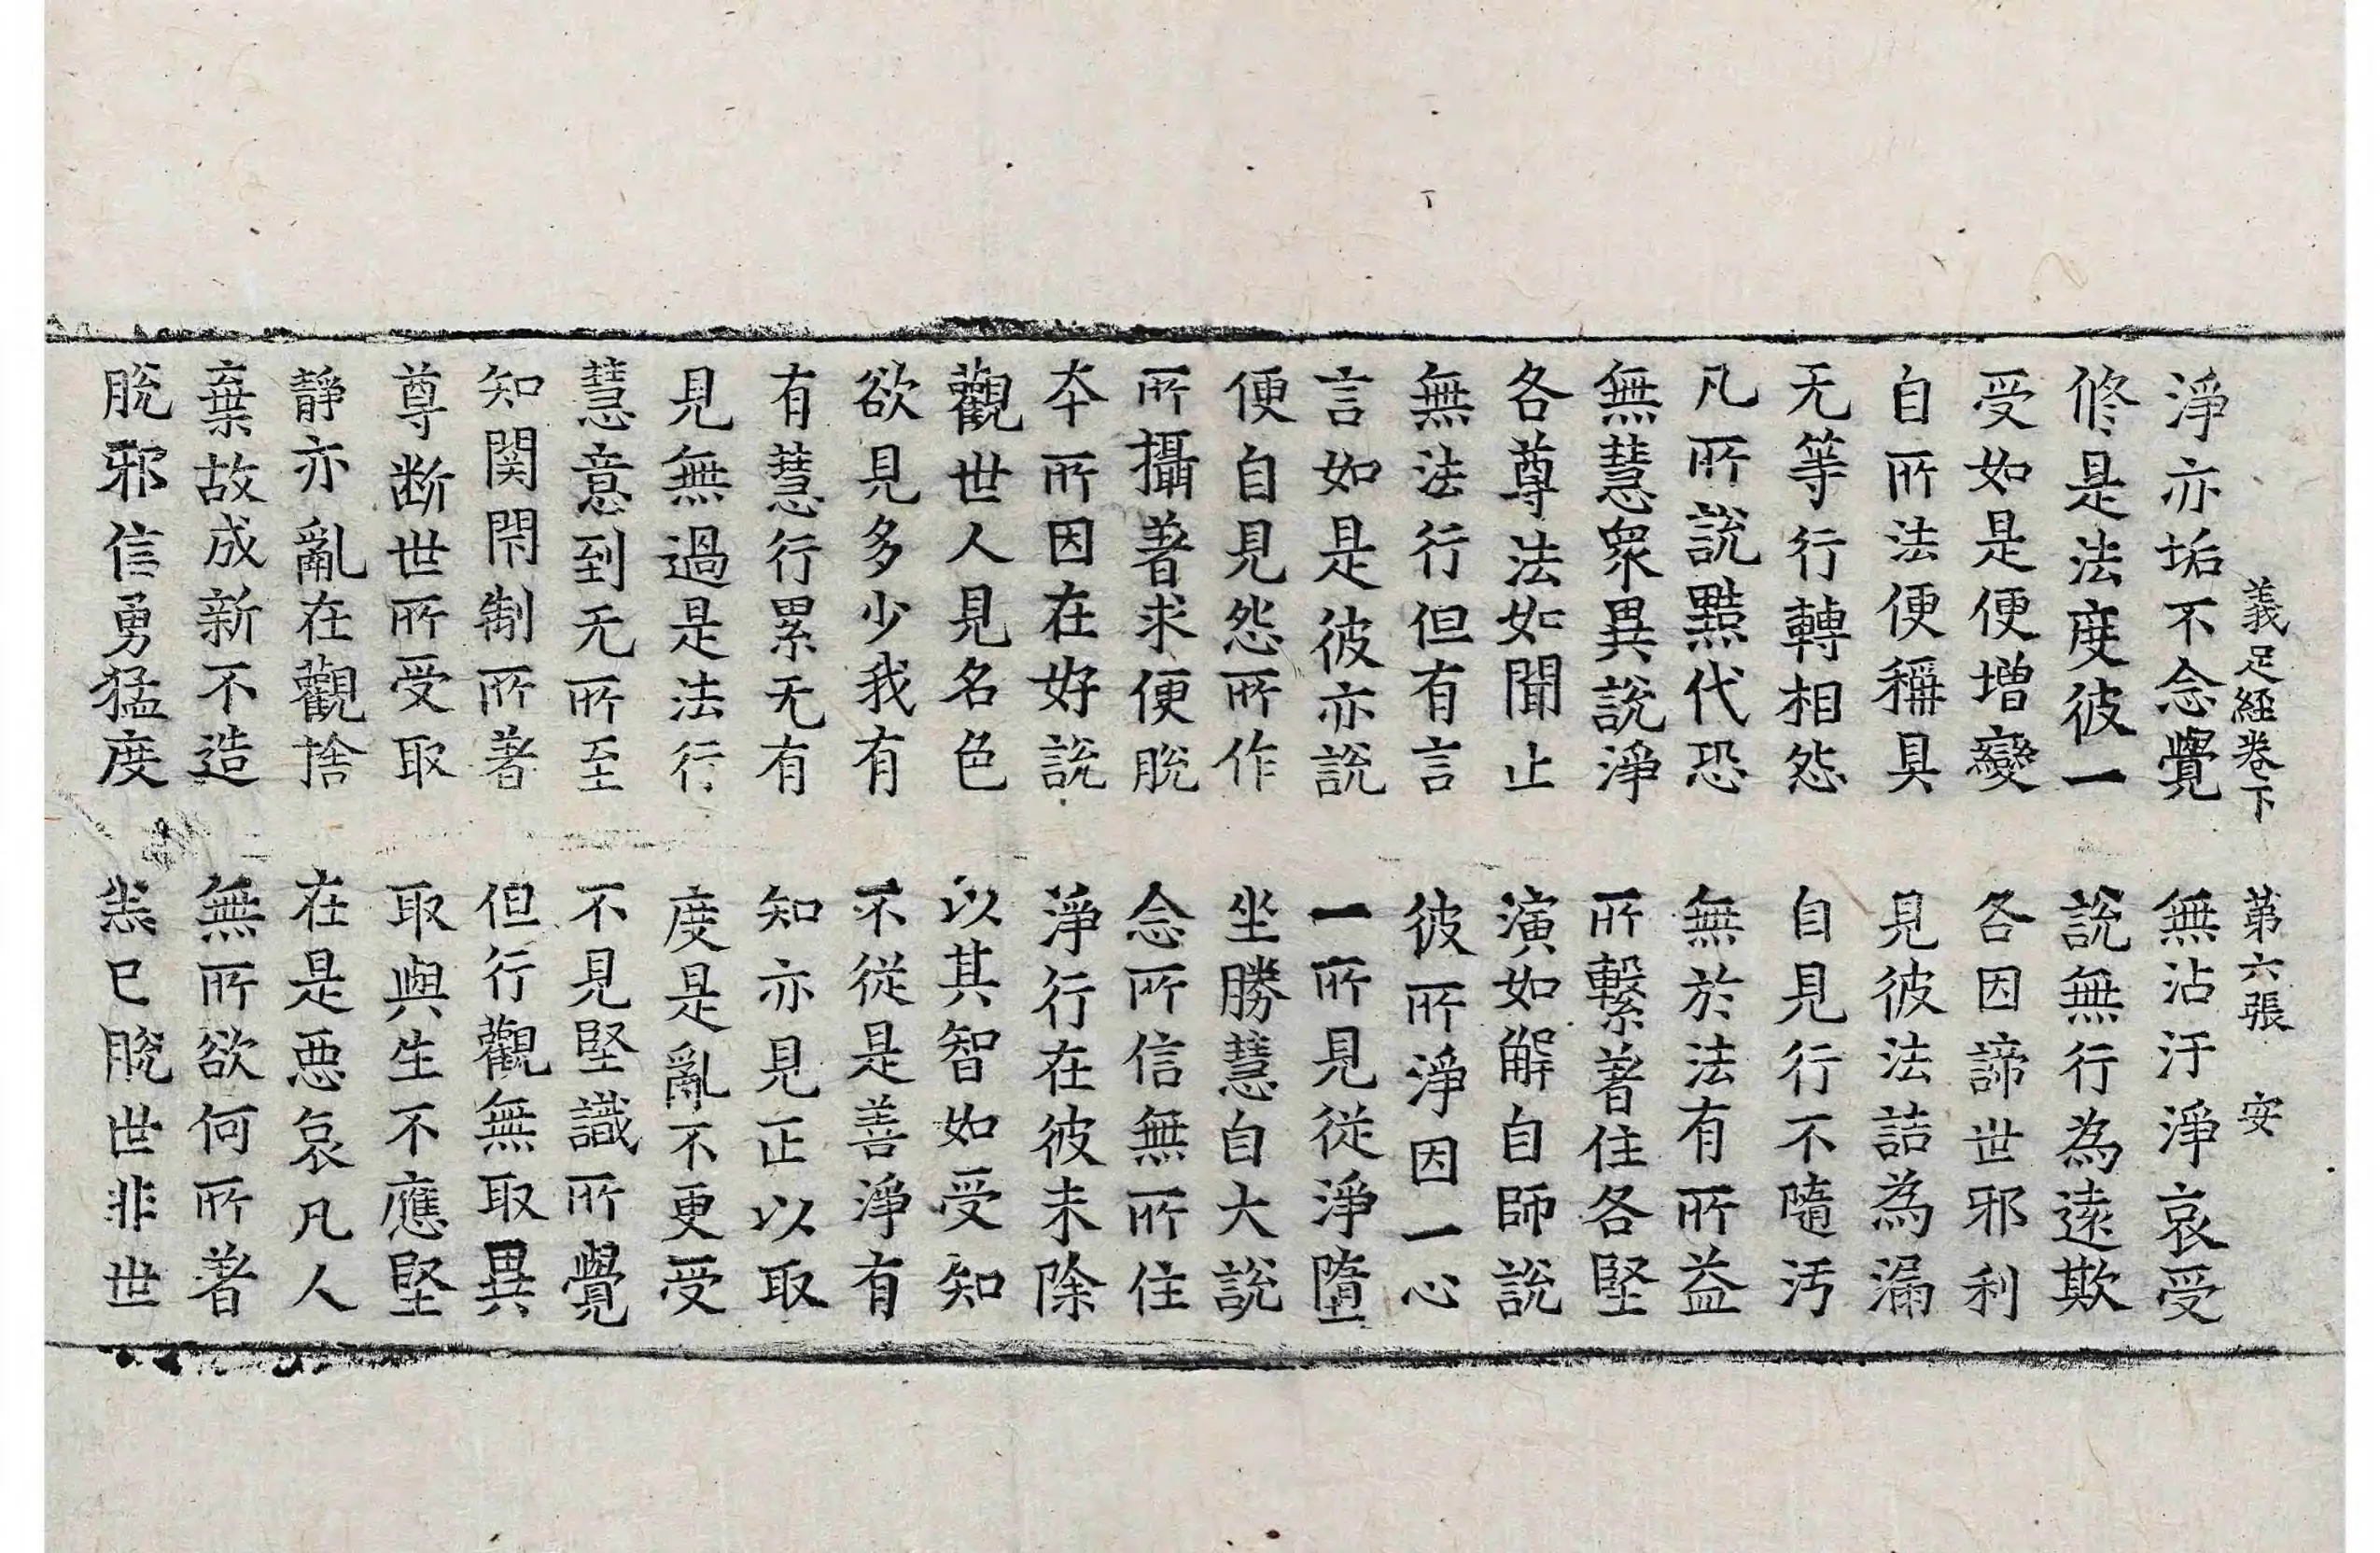 義足經卷下 第六張 安
淨亦垢不念覺 無沾汙淨哀受
修是法度彼一 說無行為遠欺
受如是便增變 各因諦世邪利
自所法便稱具 見彼法詰為漏
无等行轉相怨 自見行不隨汚
凡所說黠代恐 無於法有所益
無慧衆異說淨 所繫著住各堅
各尊法如聞止 演如解自師說
無法行但有言 彼所淨因一心
言如是彼亦說 一所見從淨墮
便自見怨所作 坐勝慧自大說
所攝著求便脫 念所信無所住
本所因在好說 淨行在彼未除
觀世人見名色 以其智如受知
欲見多少我有 不從是善淨有
有慧行累无有 知亦見正以取
見無過是法行 度是亂不更受
慧意到无所至 不見堅識所覺
知関閇制所著 但行觀無取異
尊断世所受取 取與生不應堅
靜亦亂在觀捨 在是惡哀凡人
棄故成新不造 無所欲何所著
脫邪信勇猛度 悉已脫世非世